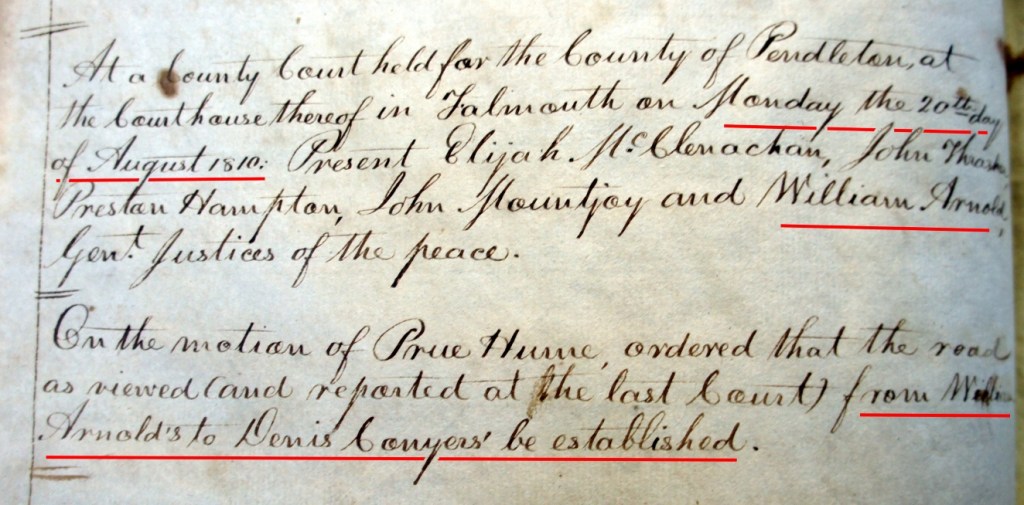 At a County Court held for the County of Pendleton, at
the Courthouse thereof in Falmouth on Monday the 20th day
of August 1810: Present Elijah McClenachan, John
Preston Hampton, John Mountjoy and William Arnold,
Gent. Justices of the peace.
On the motion of Prue Hume, ordered that the road
as viewed (and reported at the last Court) from William
Arnold's to Denis Conyers' be established.